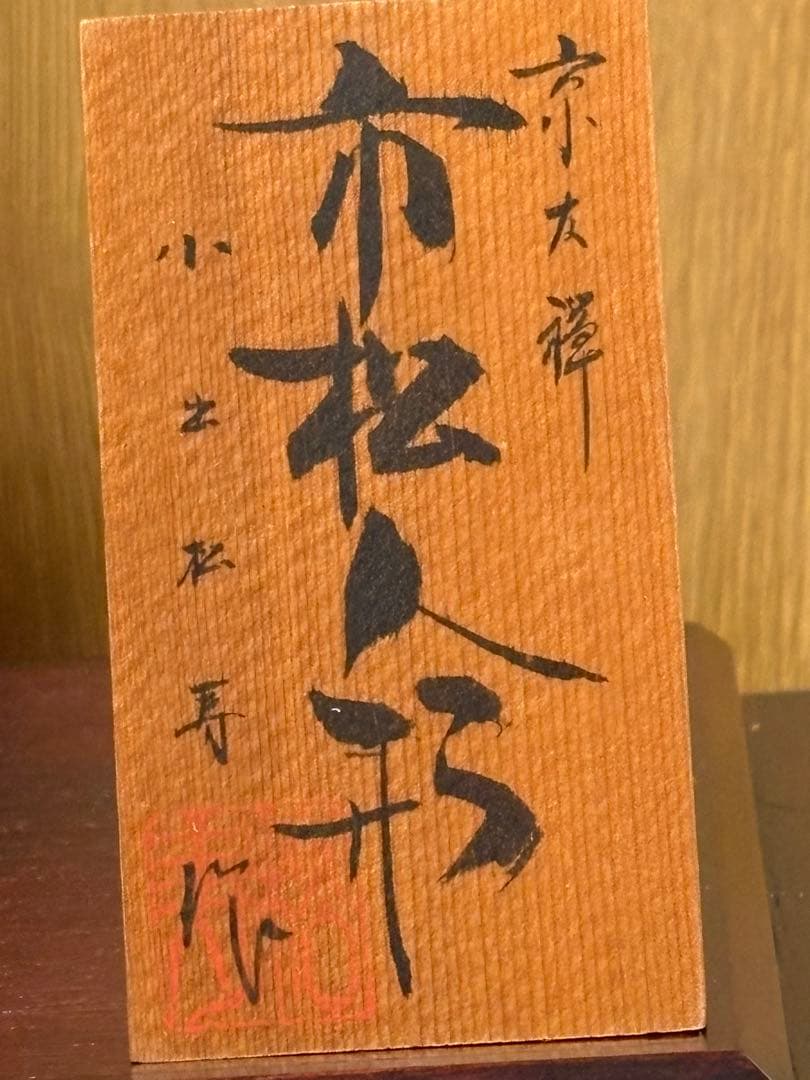 京友禅
市松人形
小出松寿作